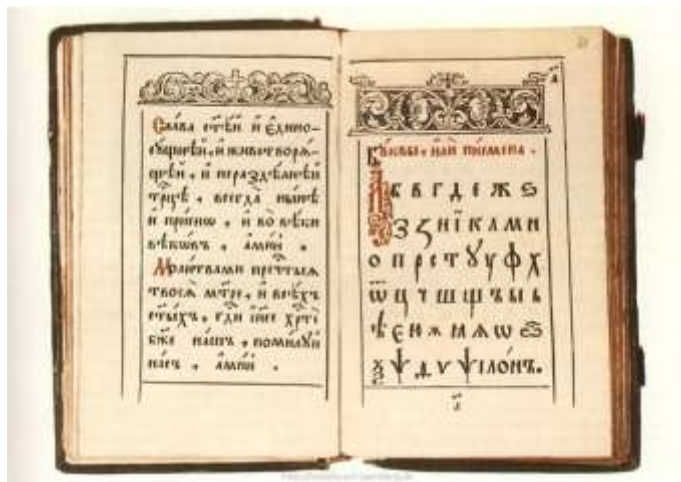 Сла́ва ст҃ѣ́й и҆ є҆дино-
сꙋ́щнѣй, и҆ животворѧ́-
щѣй, и҆ нераздѣ́лнѣй
трⷪ҇цѣ, всегда̀ ны́нѣ
и҆ при́снѡ, и҆ во вѣ́ки
вѣкѡ́въ, а҆ми́нь.
Моли́твами пречⷭ҇тыѧ
твоеѧ̀ мт҃ре, и҆ всѣ́хъ
ст҃ы́хъ, гдⷭ҇и і҆и҃се хрⷭ҇тѐ
бж҃е на́шъ, поми́лꙋй
на́съ, а҆ми́нь.
Бꙋ́квы, и҆лѝ пи́смена.
А Б В Г Д Е Ж Ѕ
З Ꙁ Н Ї К Л М Н
О П Р С Т Ȣ У Ф Х
Ѿ Ц Ч Ш Щ Ъ Ы Ь
Ѣ Є Ю Ѫ Ѧ Ѡ
Ѯ Ѱ Ѳ Ѵ Ѱїло́нъ.